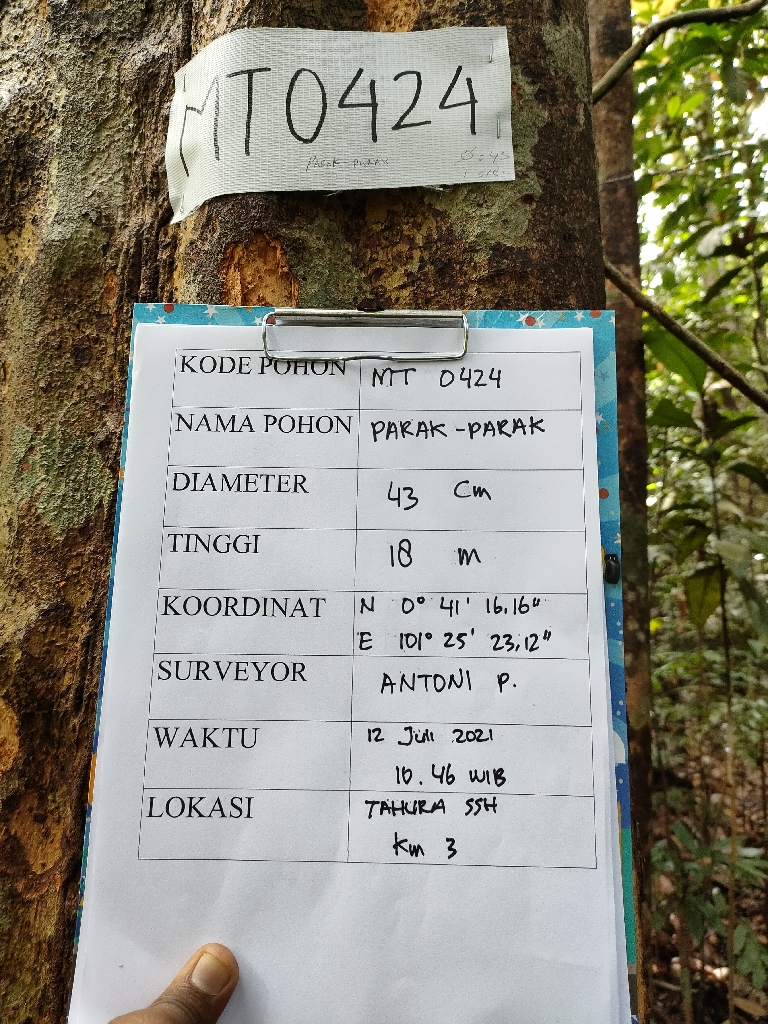 MT0424
PARAK-PARAK
KODE POHON MT 0424
NAMA POHON PARAK-PARAK
DIAMETER 43 Cm
TINGGI 18 m
KOORDINAT N 0° 41' 16,16"
E 101° 25' 23,12"
SURVEYOR ANTONI P.
WAKTU 12 Juli 2021
10.46 WIB
LOKASI TAHURA SSH
Km 3